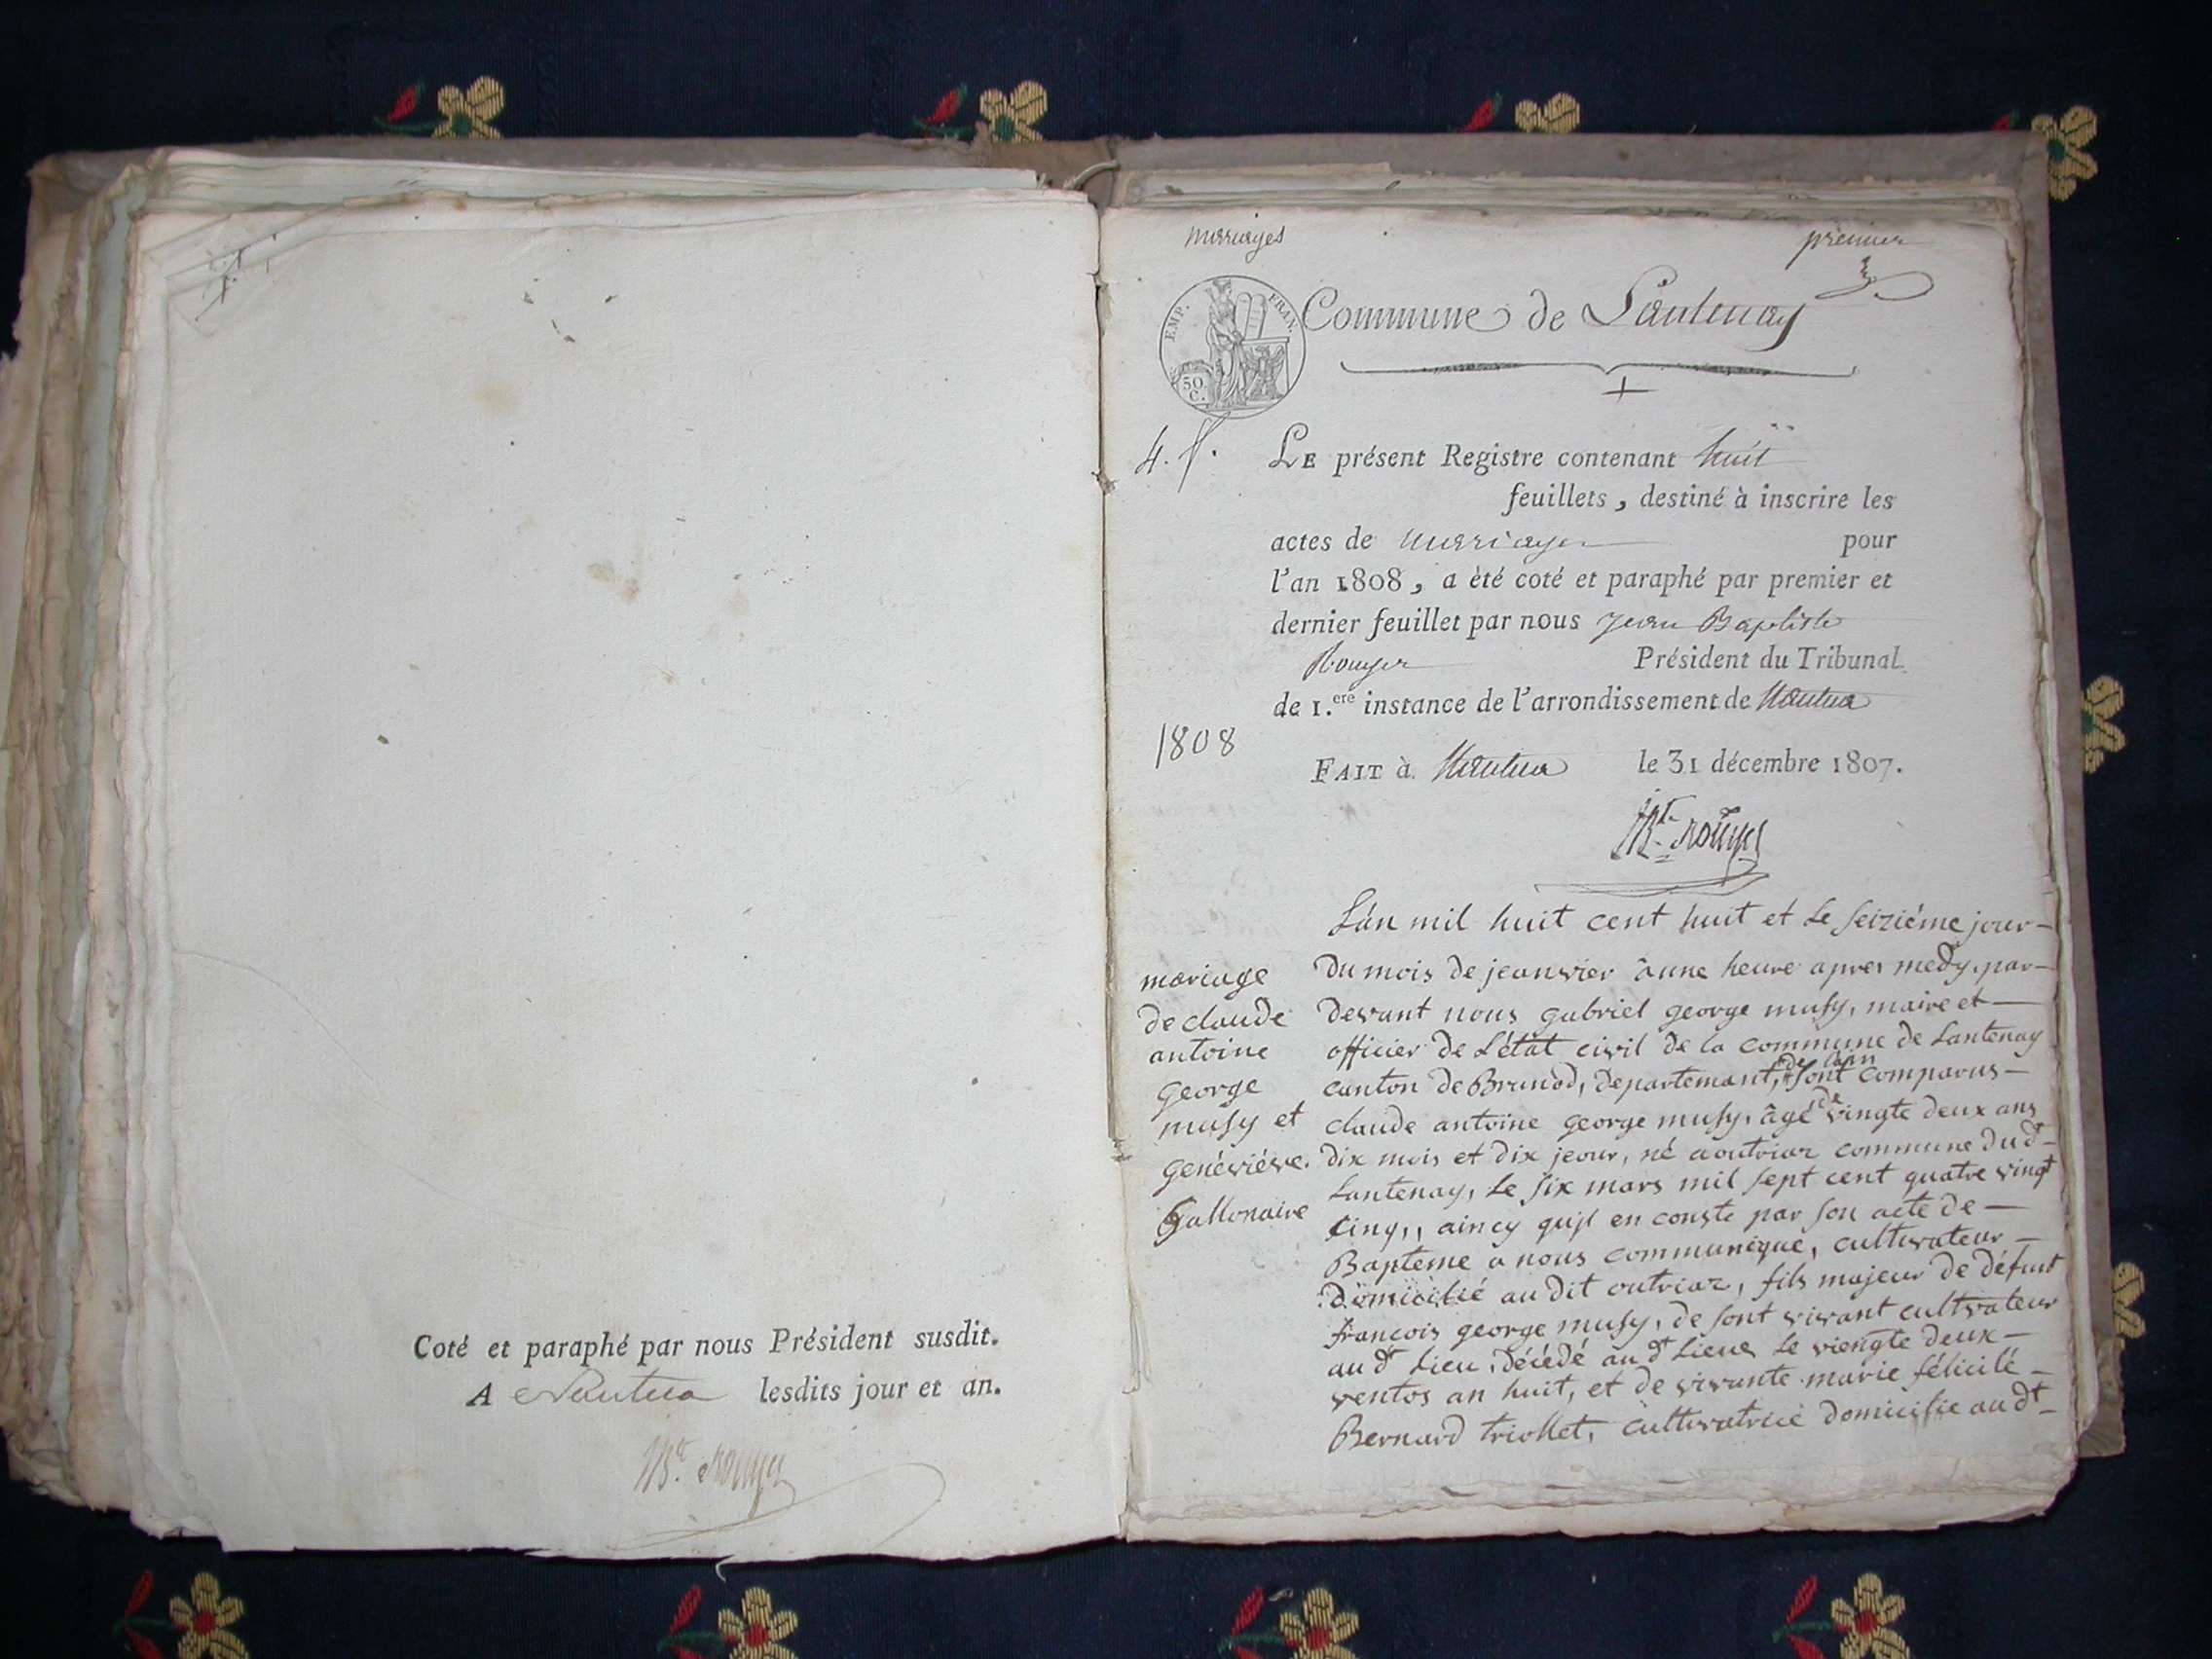 Coté et paraphé par nous Président susdit.
A Nantua lesdits jour et an.
JB.te Rouyer
marriages
premier
EMP. FRAN.
50 C.
Commune de Lantenay
4. f.
LE présent Registre contenant huit
feuillets, destiné à inscrire les
actes de marriages pour
l'an 1808, a été coté et paraphé par premier et
dernier feuillet par nous Jean Baptiste
Rouyer Président du Tribunal
de 1.ere instance de l'arrondissement de Nantua
1808
FAIT à Nantua le 31 décembre 1807.
JB.te Rouyer
mariage
de claude
antoine
george
musy et
genéviéve
Gallonaire
L'an mil huit cent huit et le seiziéme jour-
du mois de jeanvier à une heure apres medy, par-
devant nous gabriel george musy, maire et-
officier de L'état civil de la commune de Lantenay
canton de Brenod, departemant, de lain sont comparus-
claude antoine george musy, âgé de vingte deux ans
dix mois et dix jeour, né a outriaz commune dud.t
Lantenay, le six mars mil sept cent quatre vingt
cinq,, aincy quil en conste par son acte de-
Bapteme a nous communiqué, cultivateur-
domicilié au dit outriaz, fils majeur de défunt
francois george musy, de sont vivant cultivateur
au dt Lieu, décédé au dt Lieue le viengte deux-
ventos an huit, et de vivante marie félicité-
Bernard triollet, cultivatrice domicilie au dt-